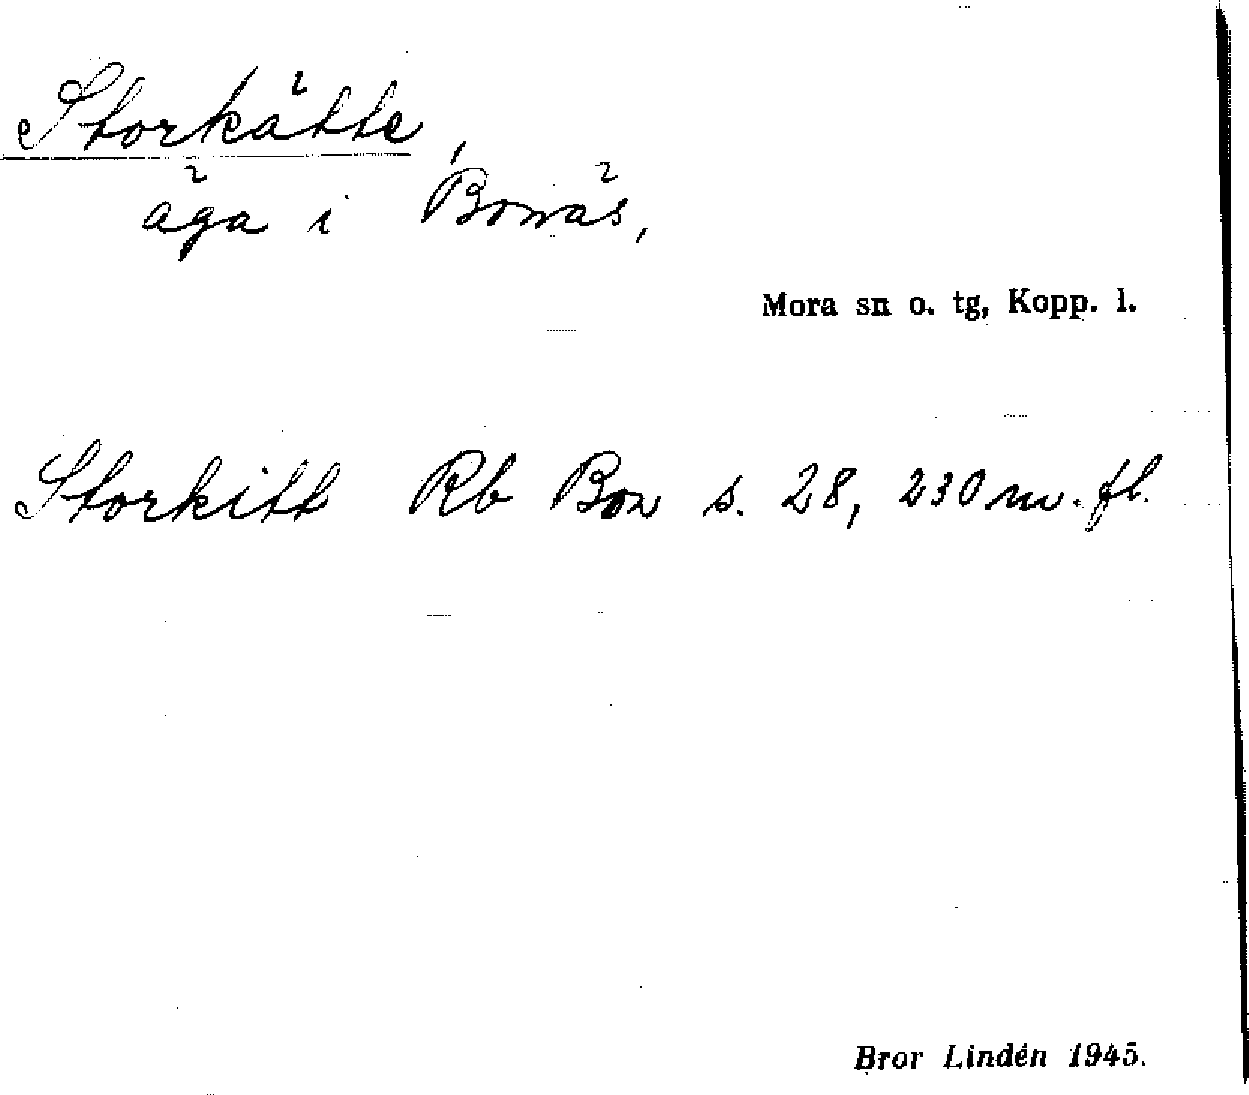 Storkätte,
äga i Bonäs,
Mora sn o. tg, Kopp. l.
Storkitt Rb Bon s. 28, 230 m. fl.
Bror Lindén 1945.